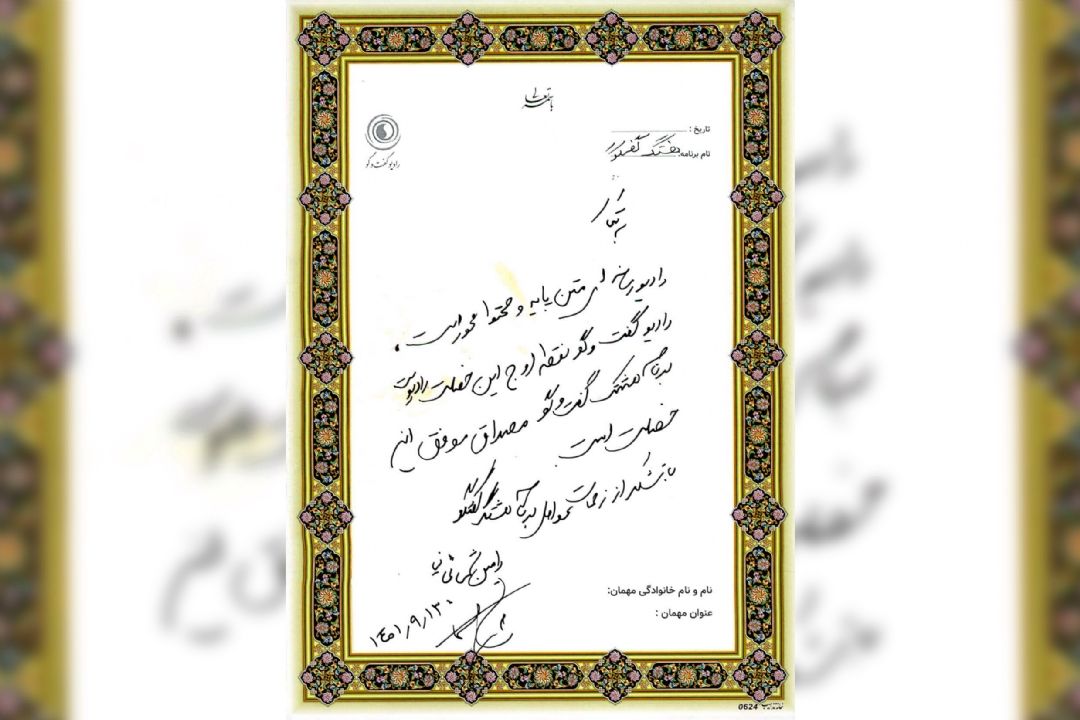 باسمه تعالی
رادیو گفت و گو
تاریخ :
نام برنامه: هشتگ گفتگو
به نام
رادیو رسانه ای متن پایه و محتوا محور است.
رادیو گفت وگو نقطه اوج این خصلت رادیوست
برنامه هشتگ گفت وگو مصداق موفق این
خصلت است.
با تشکر از زحمات عوامل برنامه هشتگ گفتگو
رامین
۱۴۰۱/۹/۱۳
نام و نام خانوادگی مهمان:
عنوان مهمان :
0624